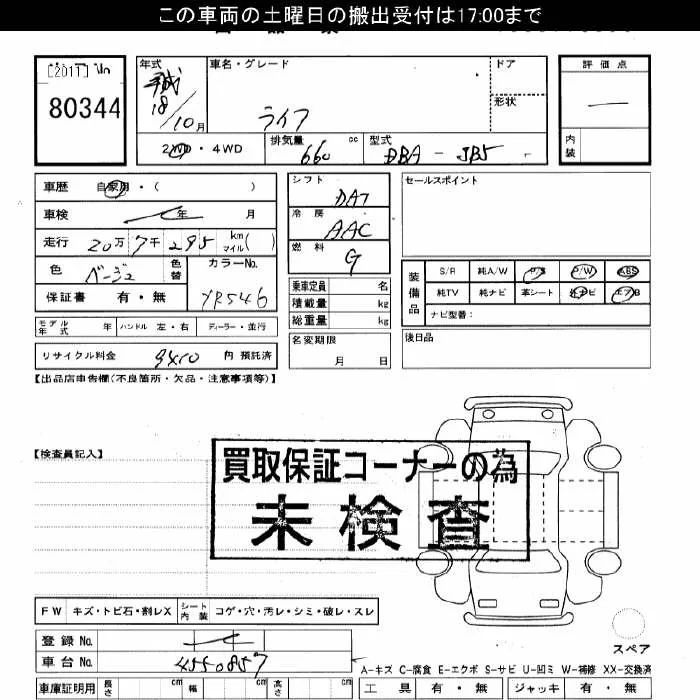 この車両の土曜日の搬出受付は17:00まで
[2011] No
80344
年式
平成
18/10月
車名・グレード
ライフ
ドア
形状
評価点
—
内装
2WD・4WD
排気量 660 cc
型式 DBA-JB5
車歴 自家用・( )
車検 年 月
走行 20万7千295 km マイル( )
色 ベージュ 色替
カラーNo. YR546
保証書 有・無
モデル年式 年 ハンドル 左・右 ディーラー・並行
リサイクル料金 円 預託済
シフト DAT
冷房 AAC
燃料 G
乗車定員 名
積載量 kg
総重量 kg
名変期限
月 日
セールスポイント
装備品
S/R 純A/W P/S P/W ABS
純TV 純ナビ 革シート 社ナビ エアB
ナビ型番:
後日品
【出品店申告欄(不良箇所・欠品・注意事項等)】
【検査員記入】
買取保証コーナーの為
未検査
FW キズ・トビ石・割レX シート内装 コゲ・穴・汚レ・シミ・破レ・スレ
登録No.
車台No. 4550857
スペア
A-キズ C-腐食 E-エクボ S-サビ U-凹ミ W-補修 XX-交換済
車庫証明用 長さ cm 幅 cm 高さ cm
工具 有・無 ジャッキ 有・無